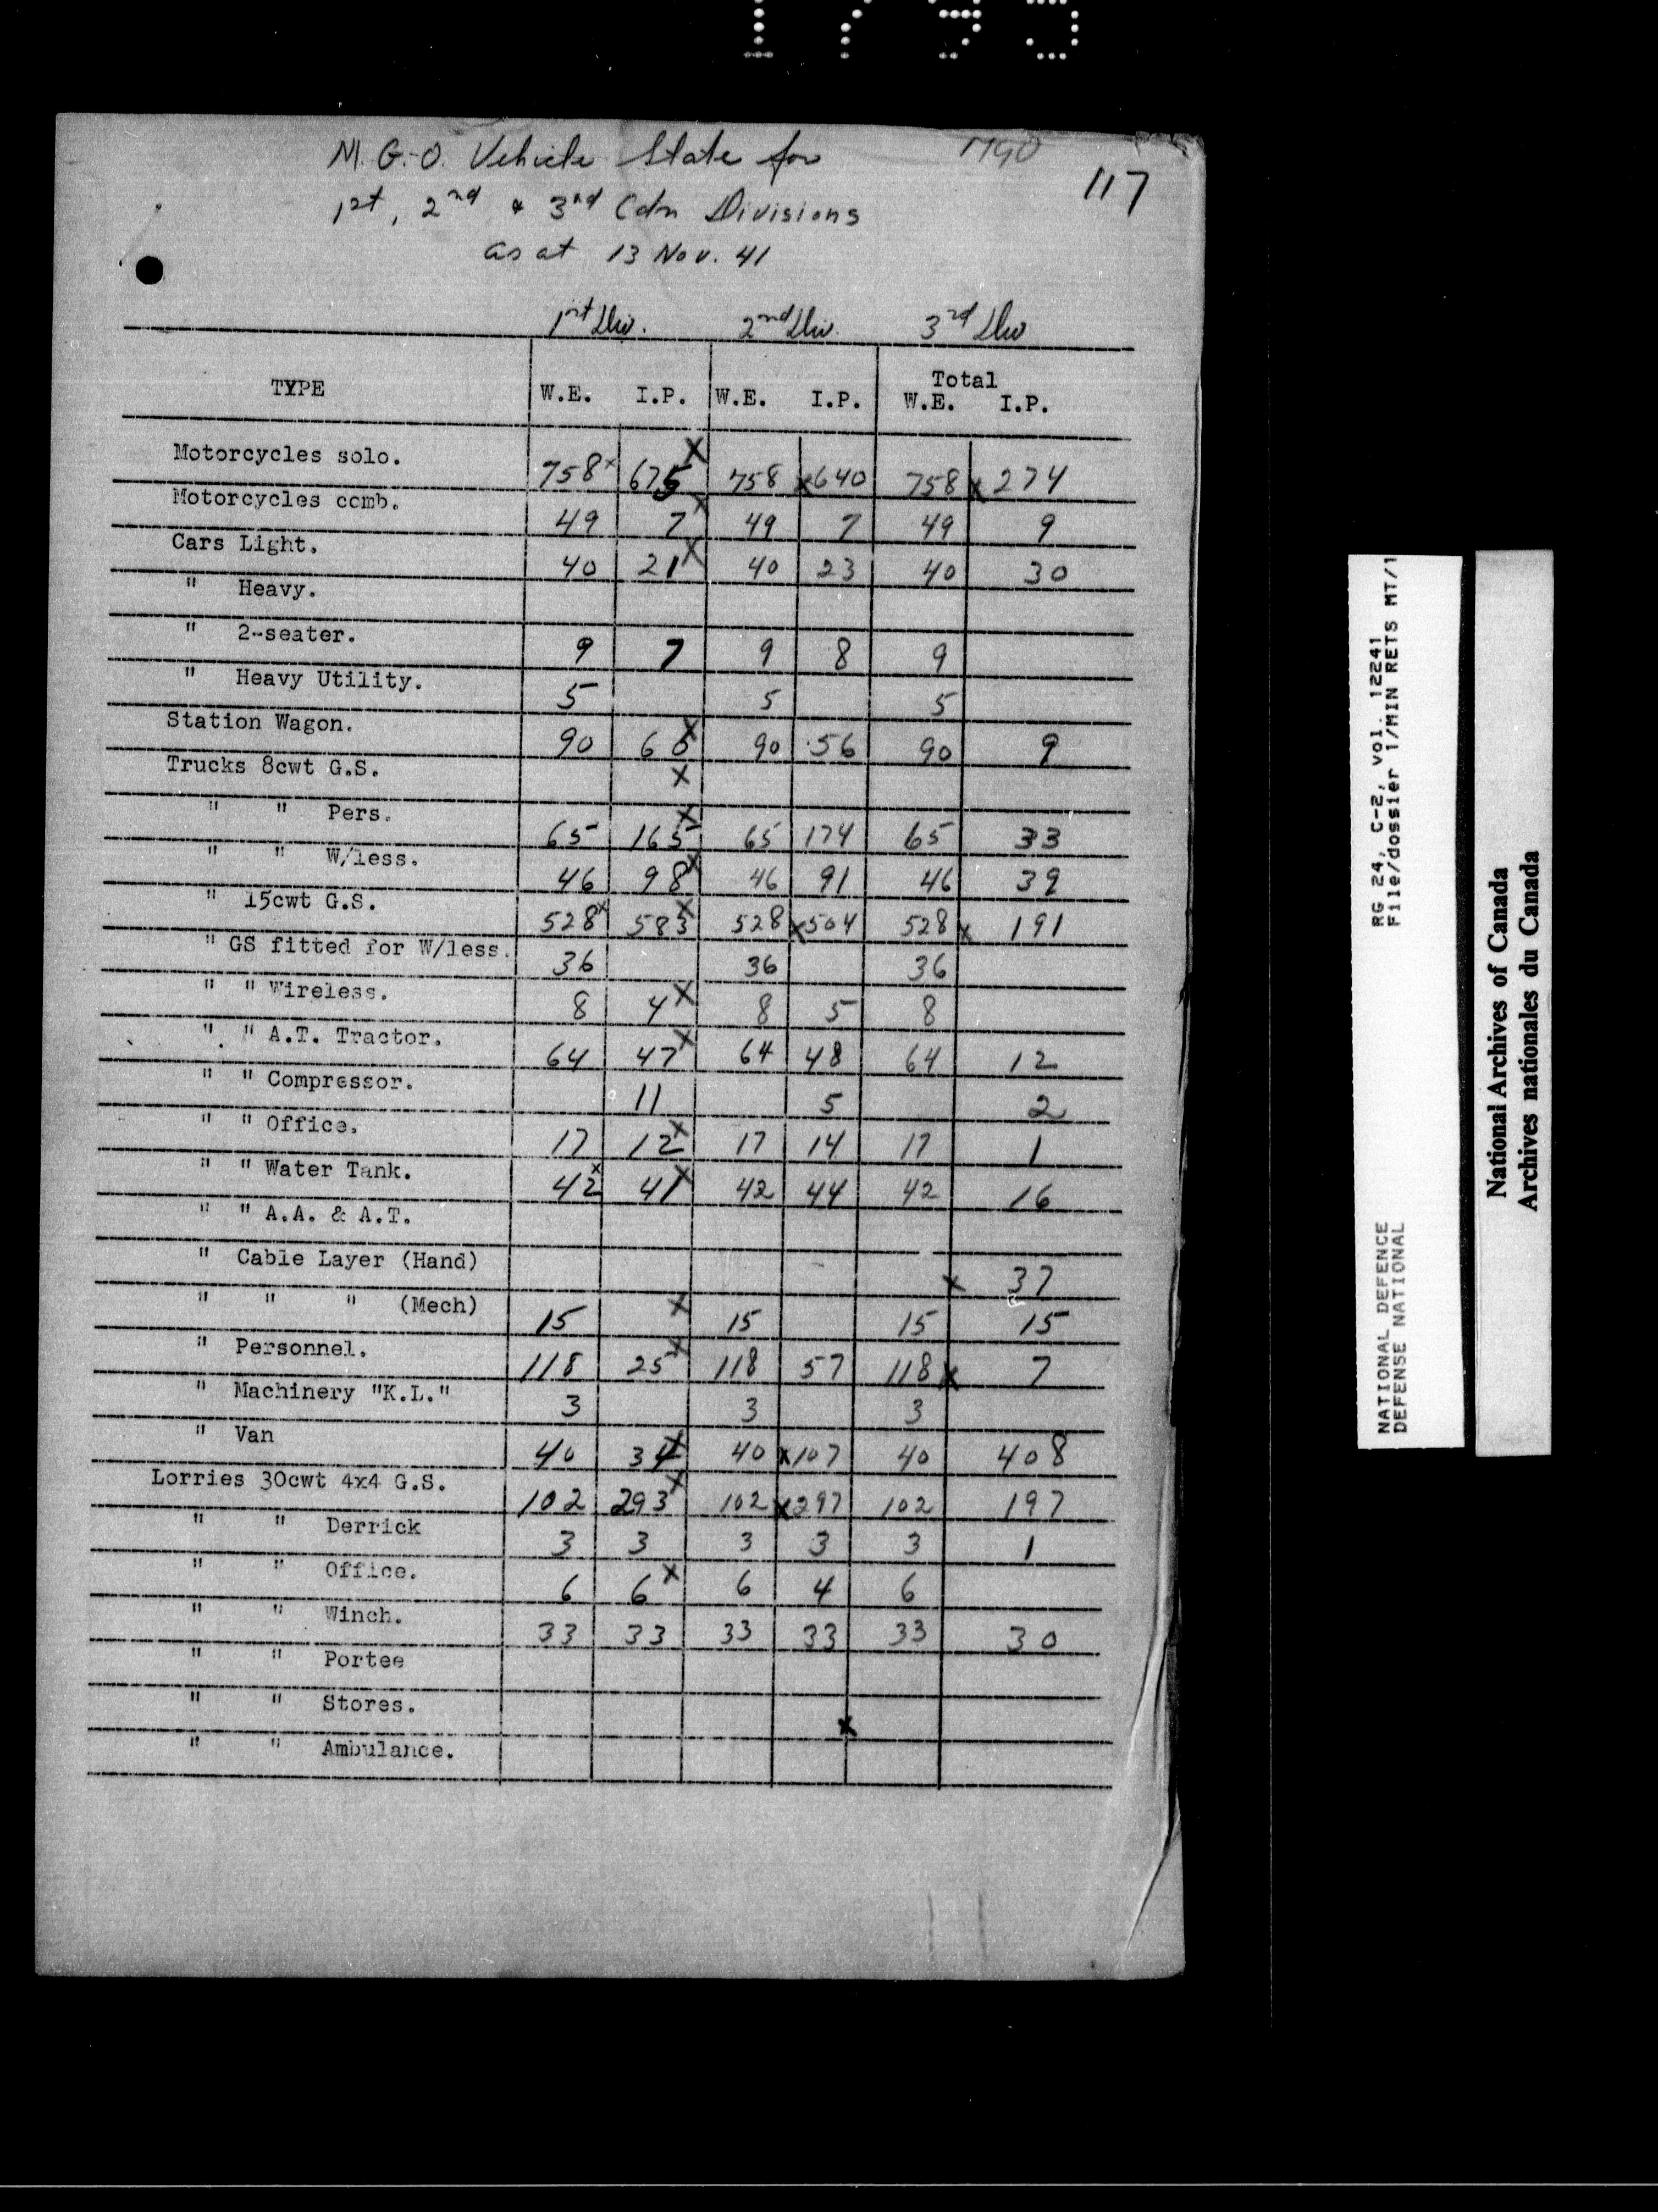 1795
M.G.O. Vehicle State for
1st, 2nd & 3rd Cdn Divisions
as at 13 Nov. 41
117
1st Div. 2nd Div. 3rd Div
TYPE W.E. I.P. W.E. I.P. Total W.E. I.P.
Motorcycles solo. 758x 675x 758 x640 758 x274
Motorcycles comb. 49 7x 49 7 49 9
Cars Light. 40 21x 40 23 40 30
" Heavy.
" 2-seater. 9 7 9 8 9
" Heavy Utility. 5 5 5
Station Wagon. 90 60x 90 56 90 9
Trucks 8cwt G.S. x
" " Pers. 65 165x 65 174 65 33
" " W/less. 46 98x 46 91 46 39
" 15cwt G.S. 528x 583x 528 x504 528 x 191
" GS fitted for W/less. 36 36 36
" " Wireless. 8 4x 8 5 8
" " A.T. Tractor. 64 47x 64 48 64 12
" " Compressor. 11 5 2
" " Office. 17 12x 17 14 17 1
" " Water Tank. 42x 41x 42 44 42 16
" " A.A. & A.T.
" Cable Layer (Hand) x 37
" " " (Mech) 15 x 15 15 15
" Personnel. 118 25x 118 57 118x 7
" Machinery "K.L." 3 3 3
" Van 40 34x 40 x107 40 408
Lorries 30cwt 4x4 G.S. 102 293x 102 x297 102 197
" " Derrick 3 3 3 3 3 1
" " Office. 6 6x 6 4 6
" " Winch. 33 33 33 33 33 30
" " Portee
" " Stores. x
" " Ambulance.
RG 24, C-2, vol. 12241
File/dossier 1/MIN RETS MT/1
NATIONAL DEFENCE
DEFENSE NATIONAL
National Archives of Canada
Archives nationales du Canada